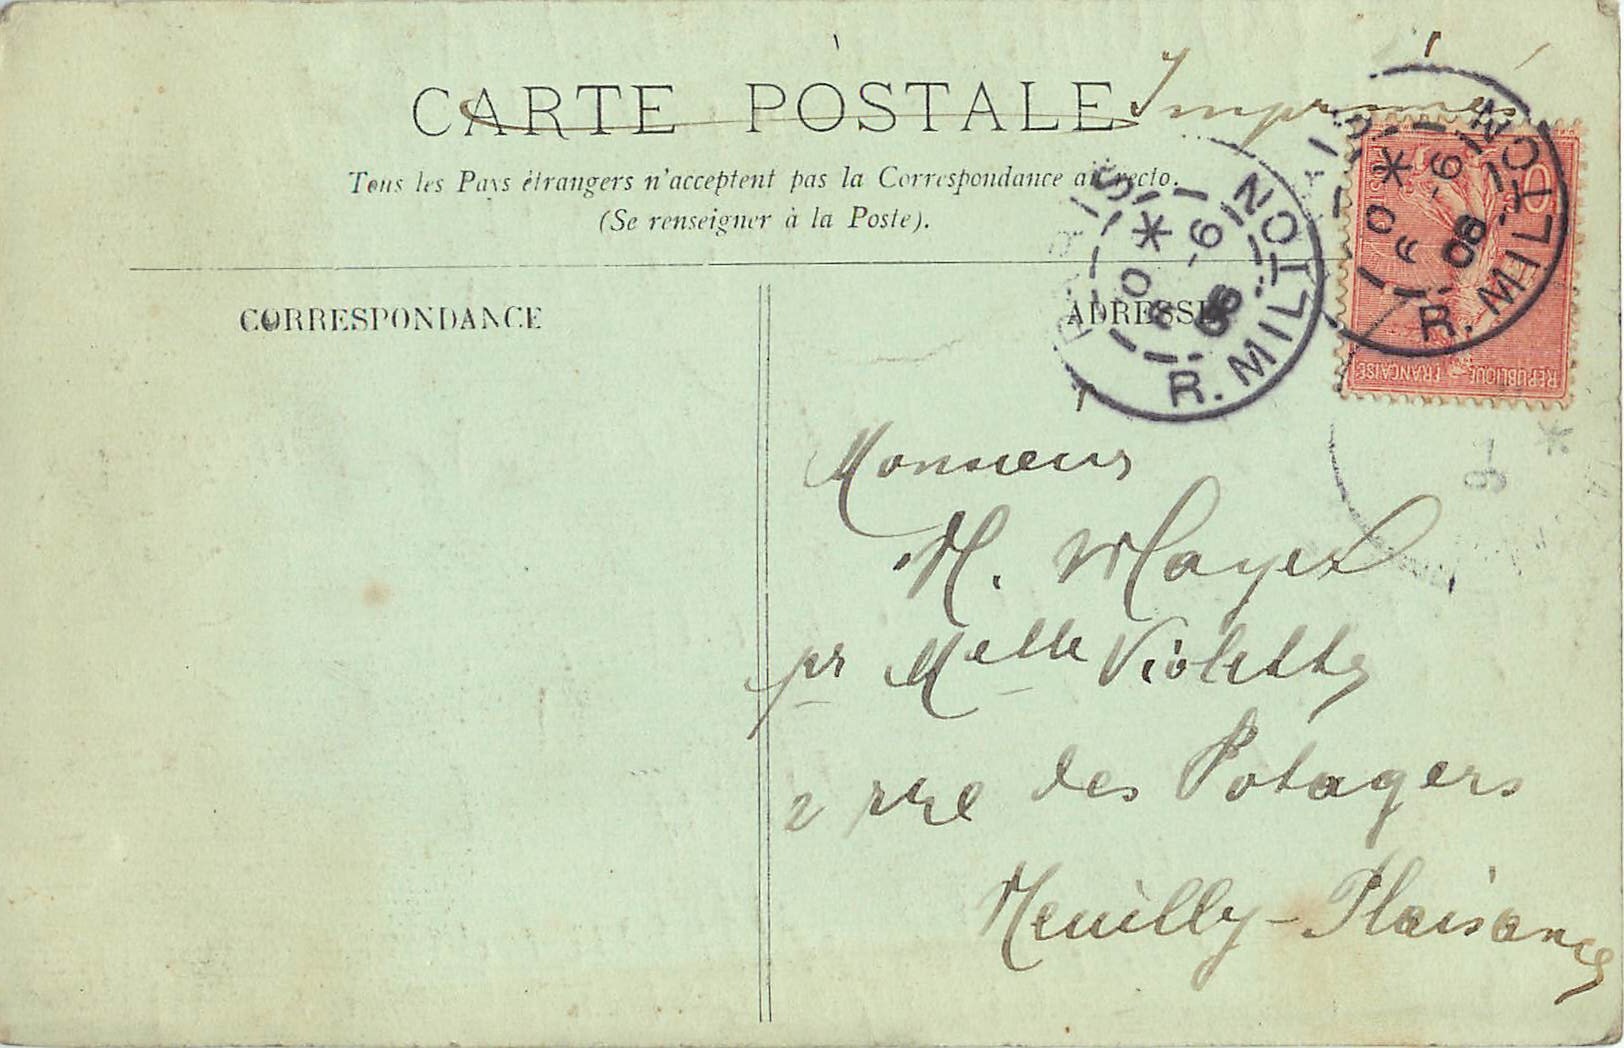 CARTE POSTALE Imprimés
Tous les Pays étrangers n'acceptent pas la Correspondance au recto.
(Se renseigner à la Poste).
CORRESPONDANCE
ADRESSE
R. MILTON
R. MILTON
REPUBLIQUE FRANÇAISE
Monsieur
M. Mayet
pr Melle Violette
2 rue des Potagers
Neuilly-Plaisance